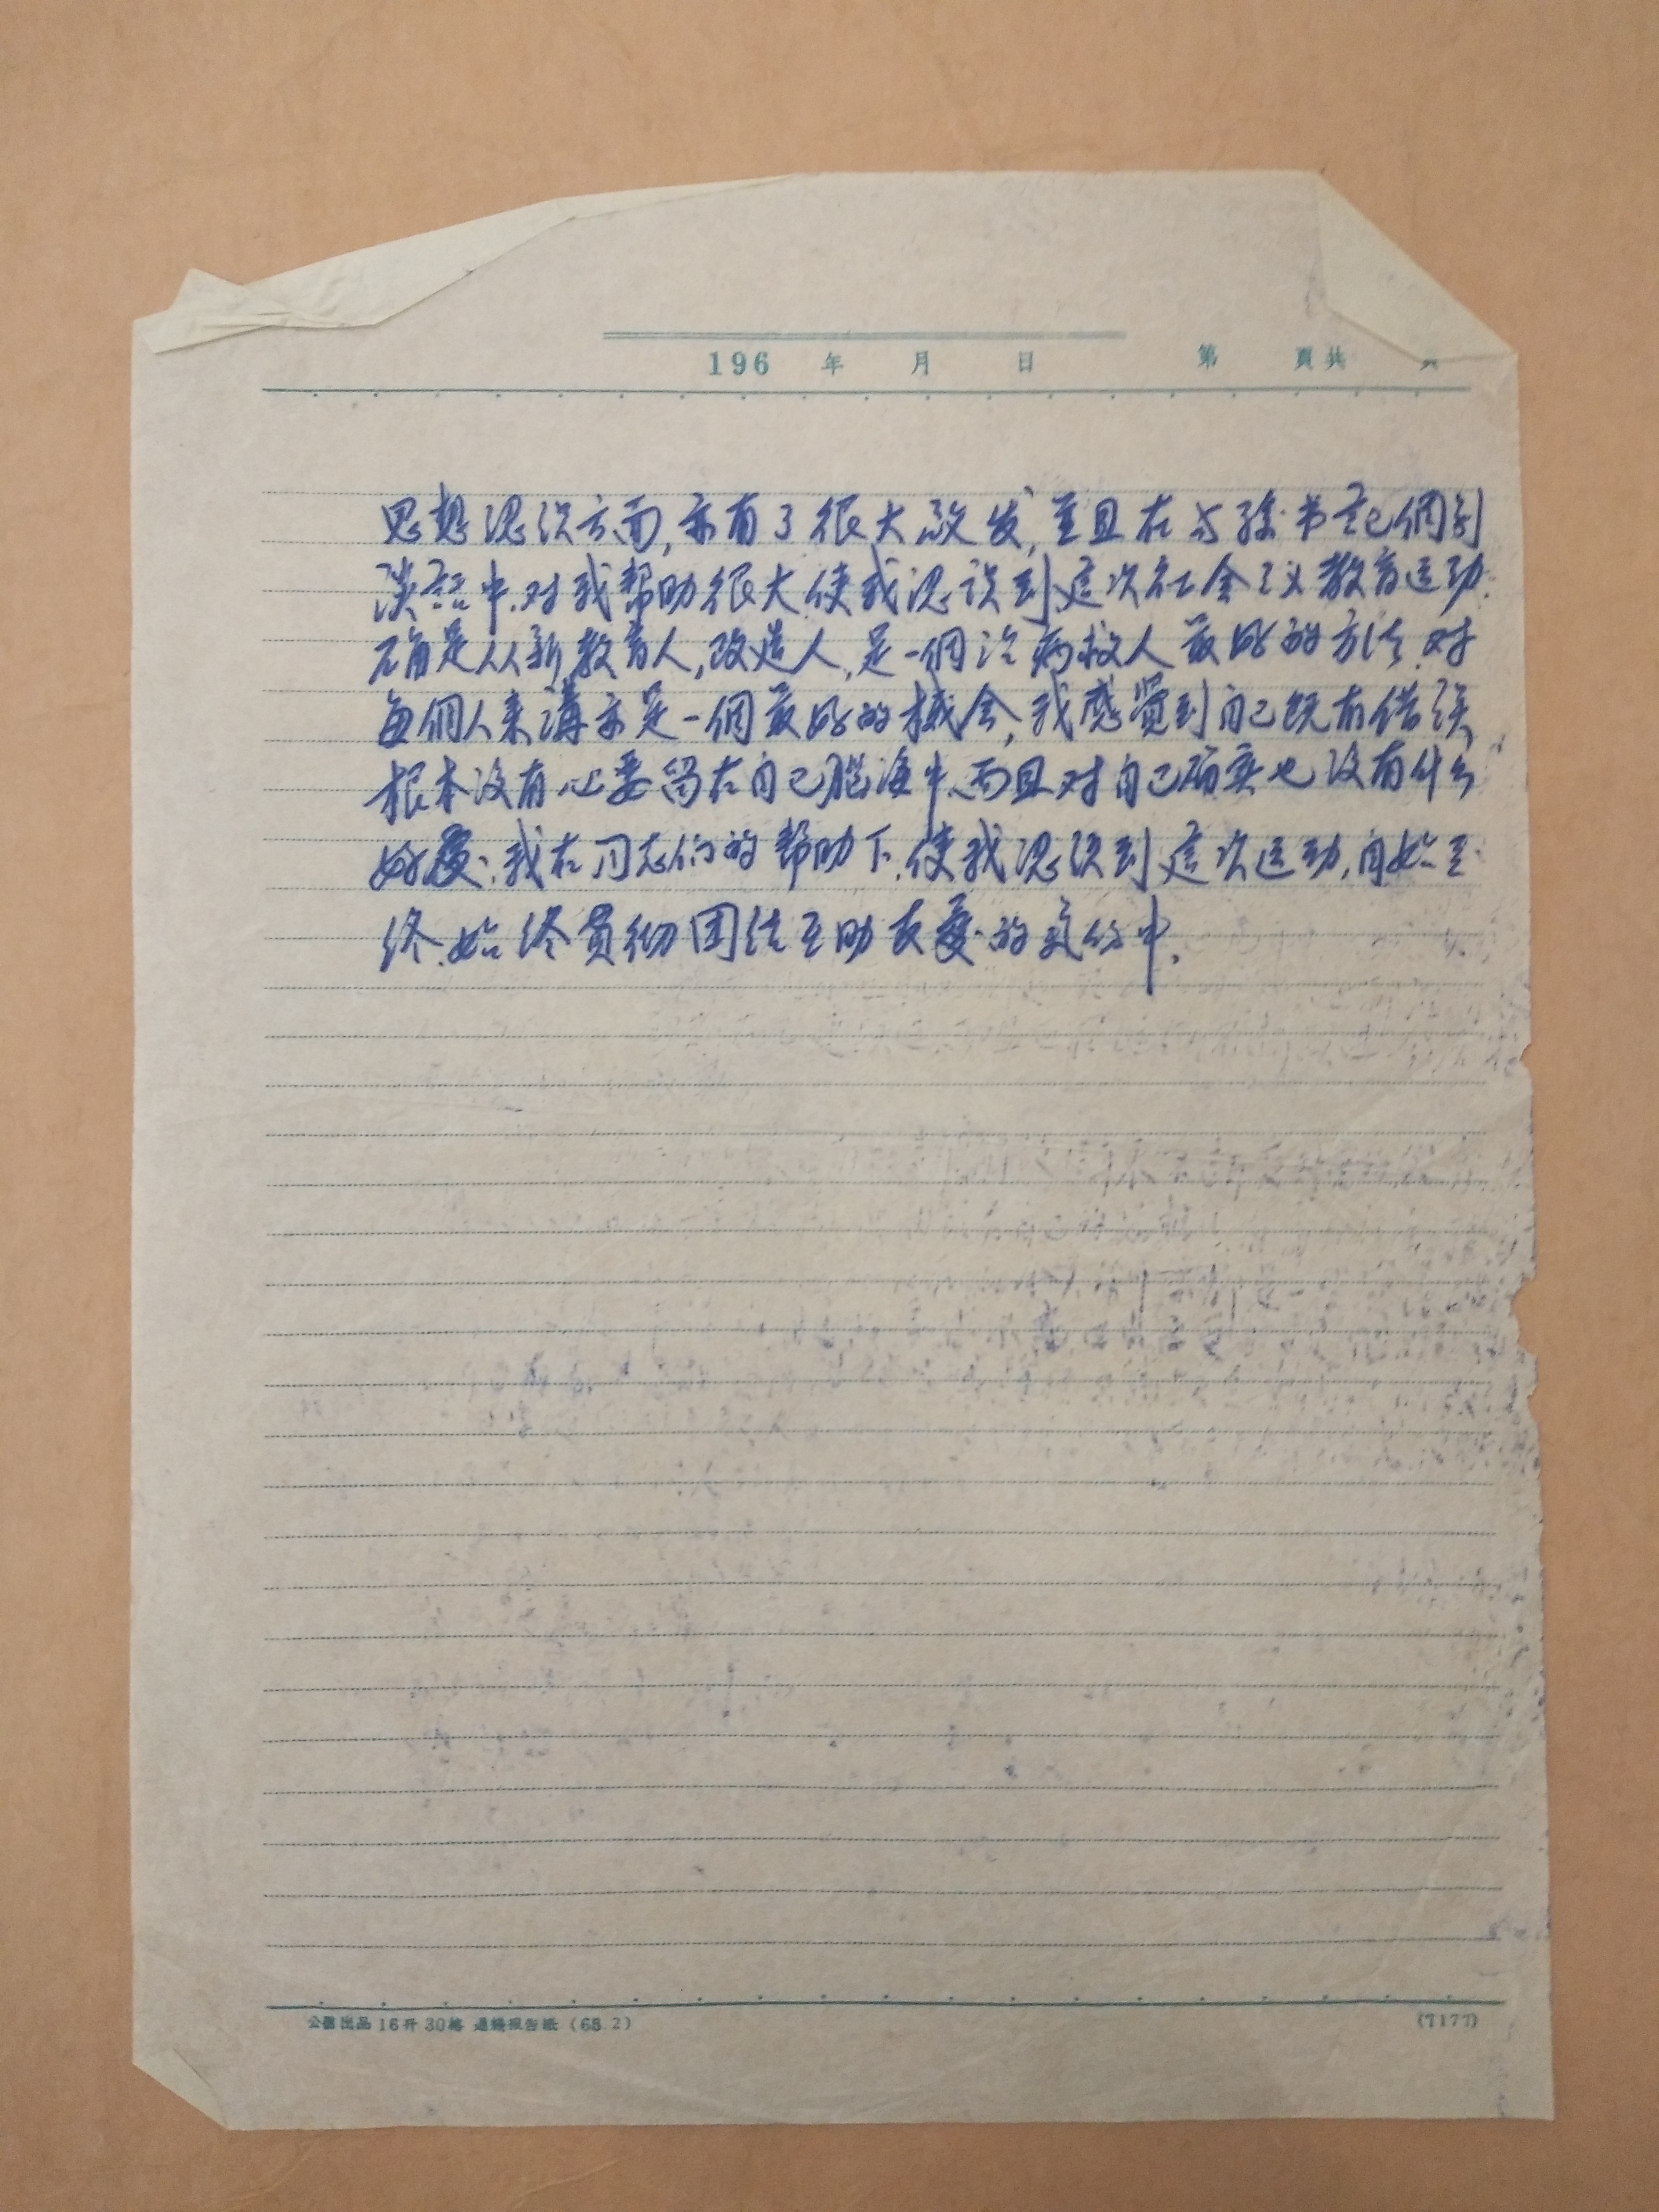 196 年 月 日 第 頁共 頁
思想认识方面,亦有了很大启发,並且在与孙书记個别
談話中.对我帮助很大.使我认识到这次社会主义教育运动.
确是从新教育人,改造人,是一個治病救人最好的方法.对
每個人来講亦是一個最好的機会,我感覚到自己既有错误
根本没有必要留在自己脑海中.而且对自己确实也没有什么
好處.我在同志们的帮助下.使我认识到这次运动.自始至
终.始终贯彻团结互助友爱的氣份中.
公 出品 16开 30格 通綫报告紙 (65.2) (7177)